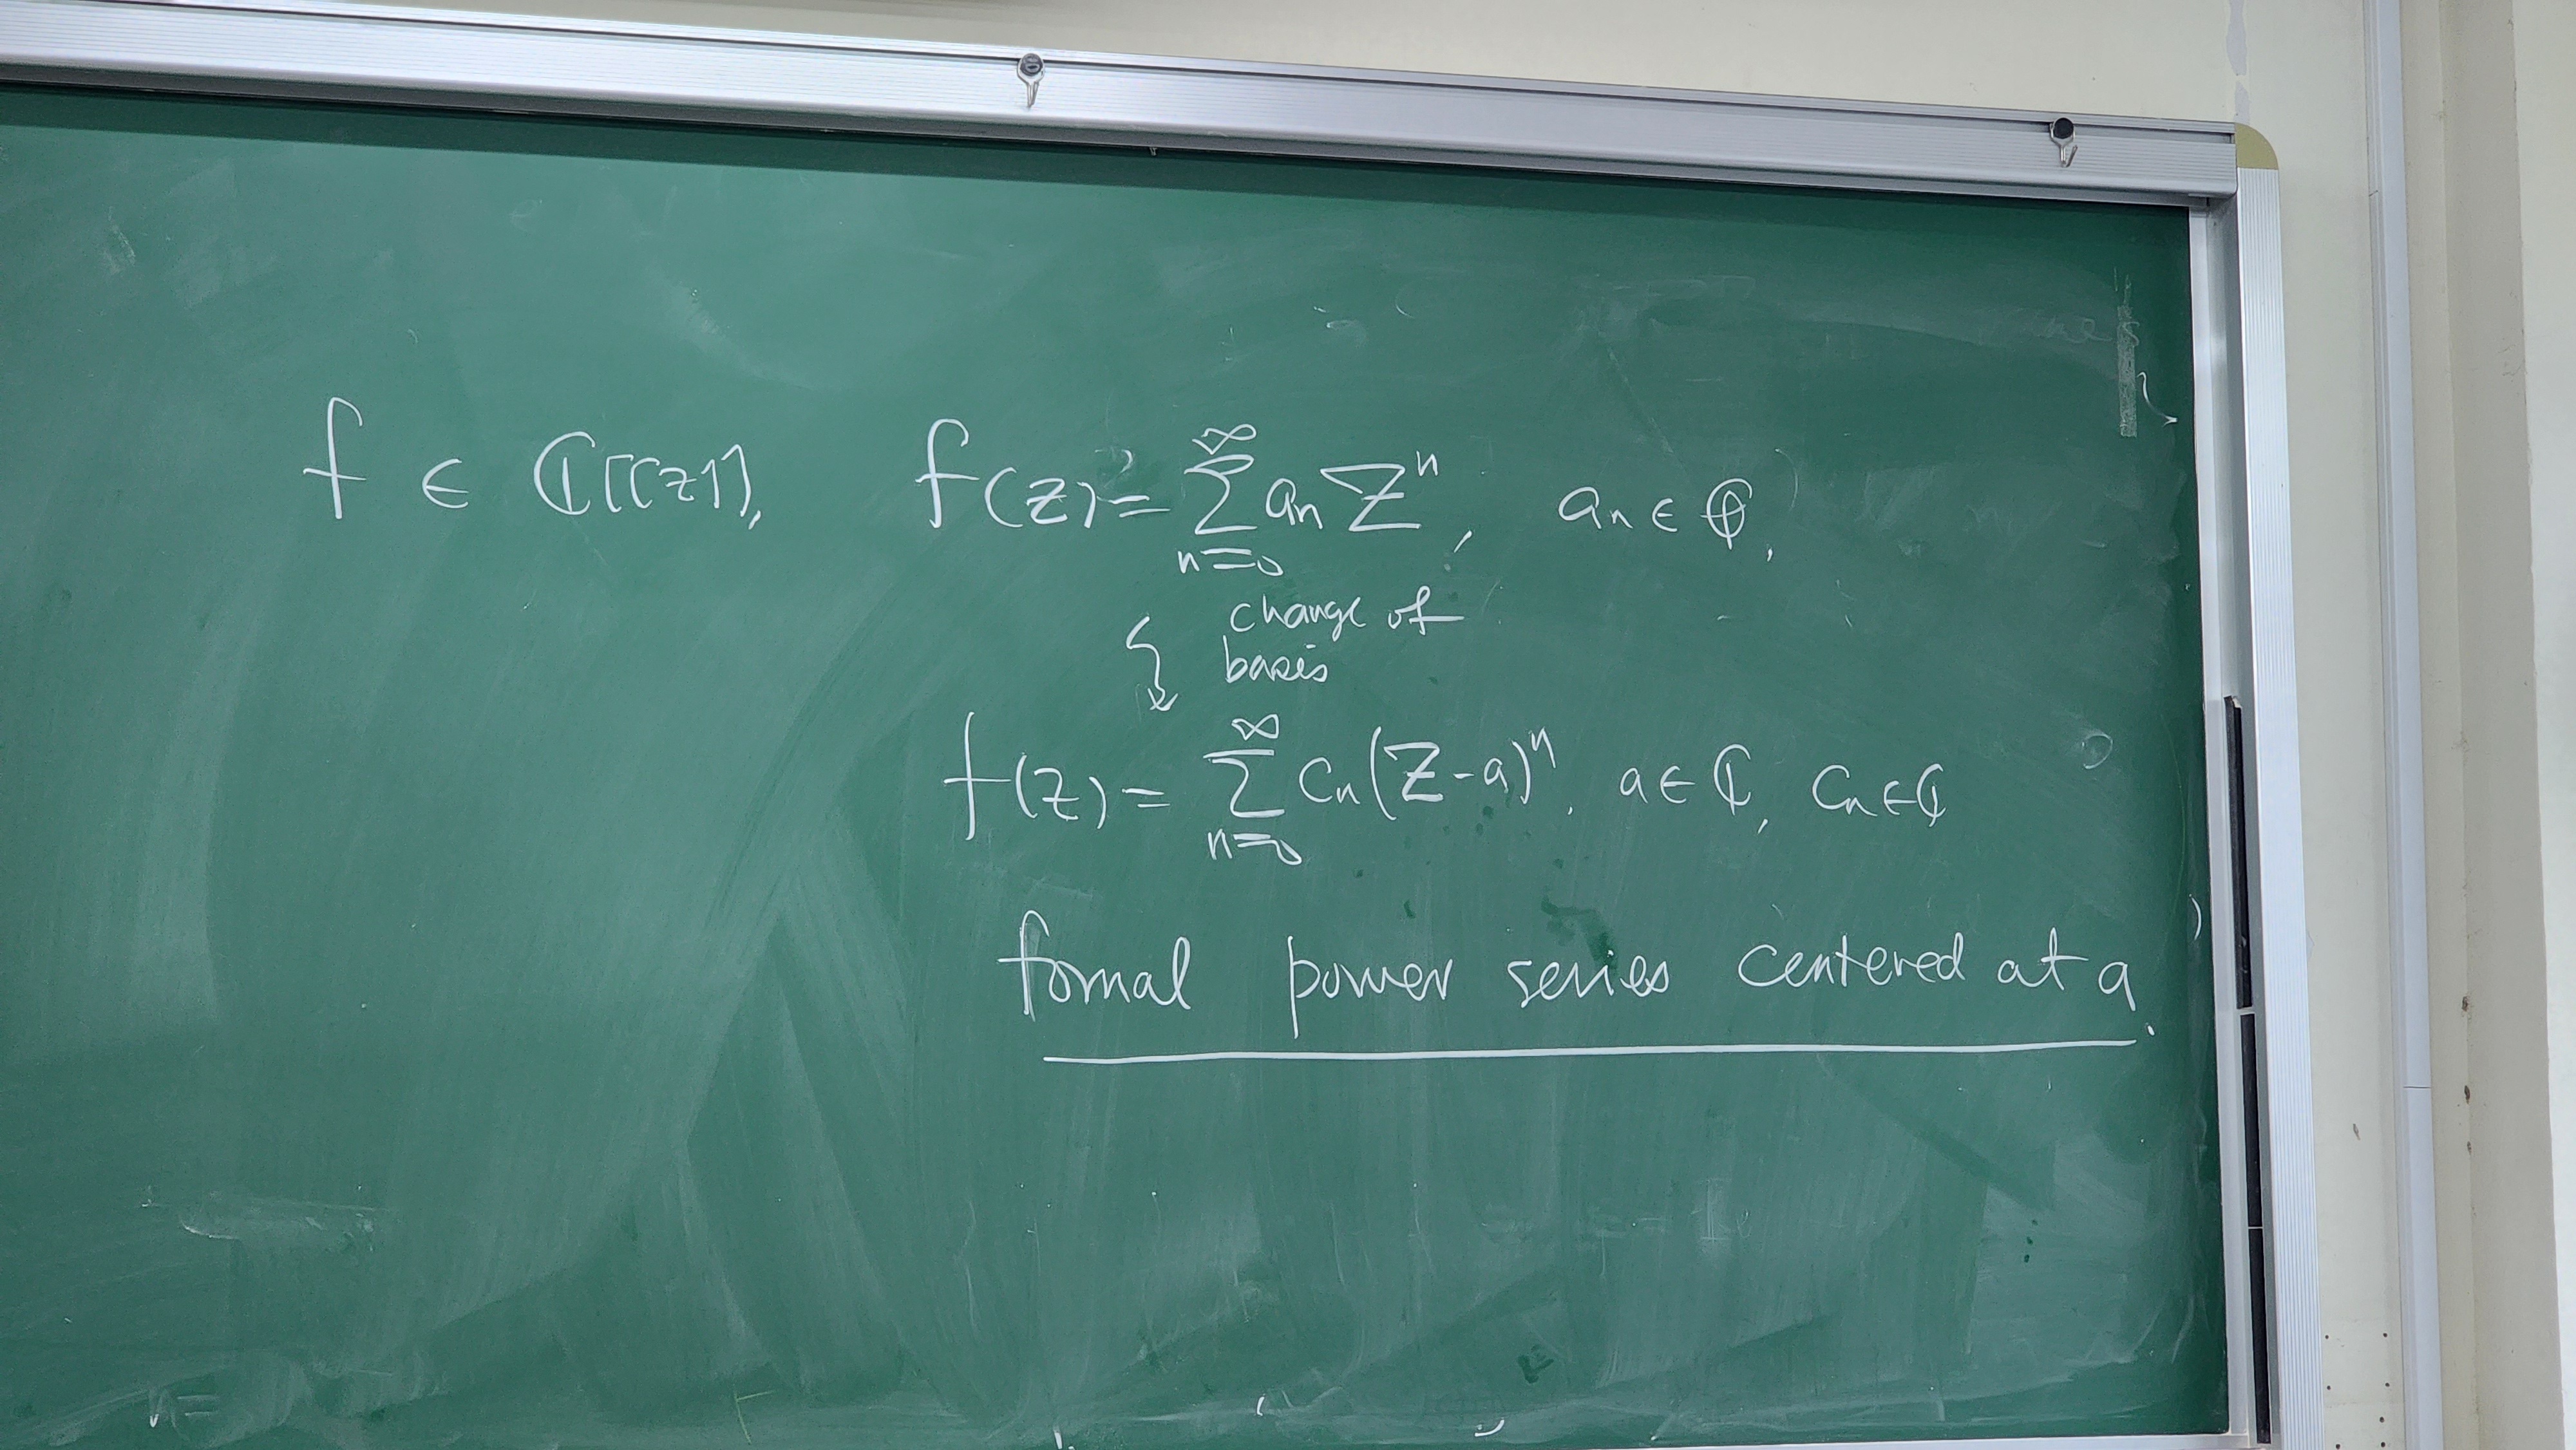 f ∈ ℂ[[z]], f(z) = ∑_{n=0}^{∞} aₙ zⁿ, aₙ ∈ ℂ,
change of
basis
f(z) = ∑_{n=0}^{∞} cₙ(z-a)ⁿ, a ∈ ℂ, cₙ ∈ ℂ
formal power series centered at a.